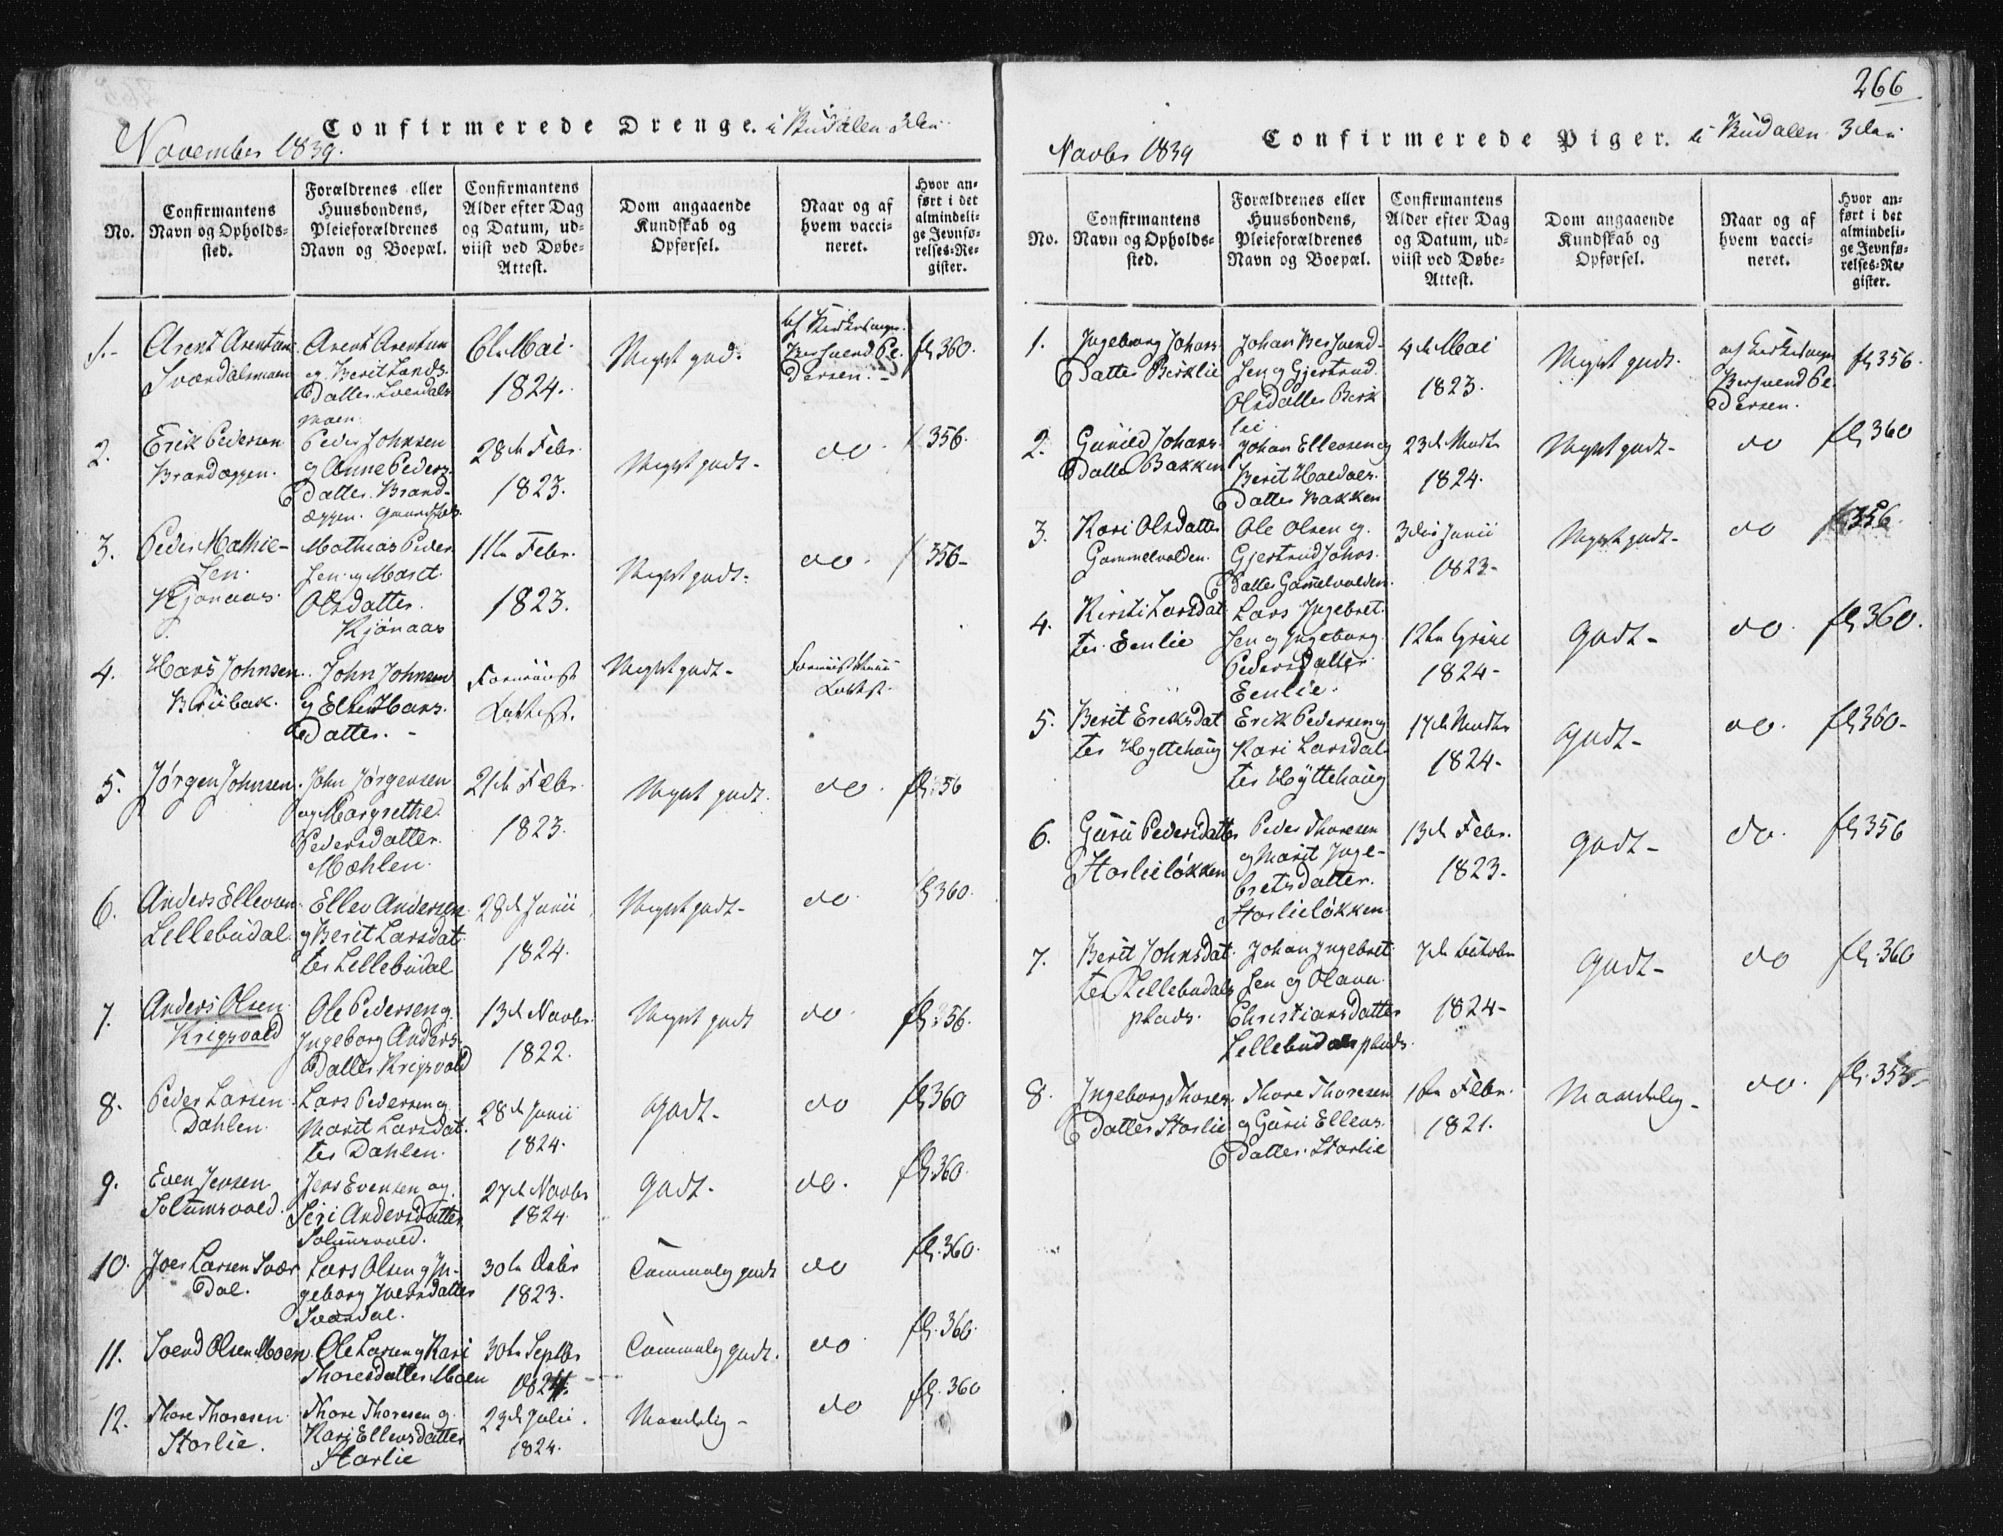 266
Confirmerede Drenge. i Budalen 3den
November 1839.
No.
Confirmantens
Navn og Opholds-
sted.
Forældrenes eller
Huusbondens,
Pleieforældrenes
Navn og Boepæl.
Confirmantens
Alder efter Dag
og Datum, ud-
viist ved Døbe-
Attest.
Dom angaaende
Kundskab og
Opførsel.
Naar og af
hvem vacci-
neret.
Hvor an-
ført i det
almindeli-
ge Jevnfø-
relses-Re-
gister.
1.
Arent Arentsen
Sværdalsmoen
Arent Arentsen
og Berit Lands
Datter Sverdals
moen.
6te Mai
1824.
Meget godt.
af Kirkesanger
Bersvend Pe-
dersen.
fl 360.
2.
Erik Pedersen
Brandæggen.
Peder Johnsen
og Anne Peders
Datter Brand-
æggen.
28de Febr.
1823.
Meget godt-
do
356.
3.
Peder Mathie-
sen
Kjønaas.
Mathias Peder
sen og Marit
Olsdatter.
Kjønaas
11te Febr.
1823.
Meget godt.
do.
356-
4.
Hans Johnsen
Brubak.
John Johnsen
og Elen Hans
Datter.
Meget godt-
5.
Jørgen Johnsen
John Jørgensen
og Margrethe
Pedersdatter
Mæhlen.
21de Febr.
1823.
Meget godt.
do.
fl 356
6.
Anders Ellevsen
Lillebudal
Ellev Andersen
og Berit Larsdat
ter Lellebudal
28de Junii
1824.
Meget godt-
do.
fl 360.
7.
Anders Olsen
Krigsvold
Ole Pedersen og
Ingeborg Anders
Datter Krigsvold
13de Novbr.
1822.
Meget godt
do.
fl 356.
8.
Peder Larsen
Dahlen.
Lars Pedersen og
Marit Larsdat
ter Dahlen.
28de Junii
1824.
Godt-
do
fl 360
9.
Even Jensen
Solumsvold.
Jens Evensen og
Siri Andersdatter
Solumsvold.
27de Novbr
1824
Godt-
do.
fl. 360.
10.
Joer Larsen Svær
Dal.
Lars Olsen og In-
geborg Joersdatter
Sværdal.
30te Octbr
1823.
Temmelig godt
do
fl. 360.
11.
Svend Olsen Moen
Ole Larsen og Kari
Thoresdatter Moen
30te Septbr
1824.
Temmelig godt.
do
fl. 360.
12.
Thore Thoresen
Storlie.
Thore Thoresen og
Kari Ellevsdatter
Storlie
23de Julii.
1824.
Maadelig-
do
fl. 360
Confirmerede Piger. i Budalen 3den
Novbr 1839
No.
Confirmantens
Navn og Opholds-
sted.
Forældrenes eller
Huusbondens,
Pleieforældrenes
Navn og Boepæl.
Confirmantens
Alder efter Dag
og Datum, ud-
viist ved Døbe-
Attest.
Dom angaaende
Kundskab og
Opførsel.
Naar og af
hvem vacci-
neret.
Hvor an-
ført i det
almindeli-
ge Jevnfø-
relses-Re-
gister.
1.
Ingeborg Johans
Datter Birklie
Johan Bersvend-
sen og Gjertrud
Olsdatter Birk
lie.
4de Mai
1823.
Meget godt.
af Kirkesanger
Bersvend Pe-
dersen.
fl 356.
2.
Gunild Johans
Datter Bakken
Johan Ellevsen og
Berit Haldors
Datter Bakken
23de Martz
1824.
Meget godt-
do
fl 360
3.
Kari Olsdatter
Gammelvolden.
Ole Olsen og
Gjertrud Johns
Datter Gamelvolden.
3die Junii
1823-
Meget godt-
do
356.
4.
Kirsti Larsdat
ter Eenlie
Lars Ingebret
sen og Ingeborg
Pedersdatter
Eenlie.
12te
1824-
Godt-
do.
fl 360.
5.
Berit Eriksdat
ter Hyttehaug
Erik Pedersen og
Kari Larsdat
ter Hyttehaug
17de Martz
1824-
Godt-
do.
fl 360-
6.
Guru Pedersdatter
Storlieløkken
Peder Thoresen
og Marit Inge-
bretsdatter.
Storlieløkken
13de Febr.
1823.
Godt-
do.
fl 356
7.
Berit Johnsdat
ter Lillebudals
plads.
Johan Ingebret
sen og Olava
Christiansdatter
Lellebudals plads.
7de Octobr
1824-
Godt-
do
fl. 360
8.
Ingeborg Thores
datter Storlie
Thore Thoresen
og Guru Ellevs
Datter Storlie
1821.
Maadelig-
do.
fl. 353-